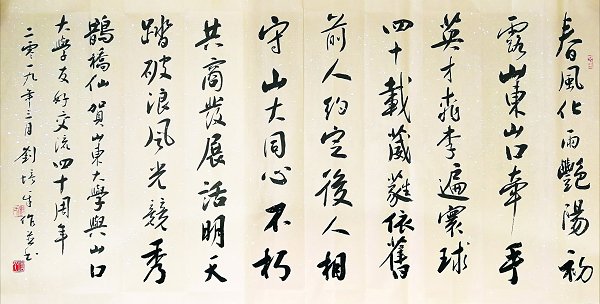 春風化雨艷陽初
露山東山口牽手
英才桃李遍寰球
四十載葳蕤依舊
前人約定後人相
守山大同心不朽
共商發展話明天
踏破浪風光競秀
鵲橋仙賀山東大學與山口
大學友好交流四十周年
二零一九年三月劉培平作並书